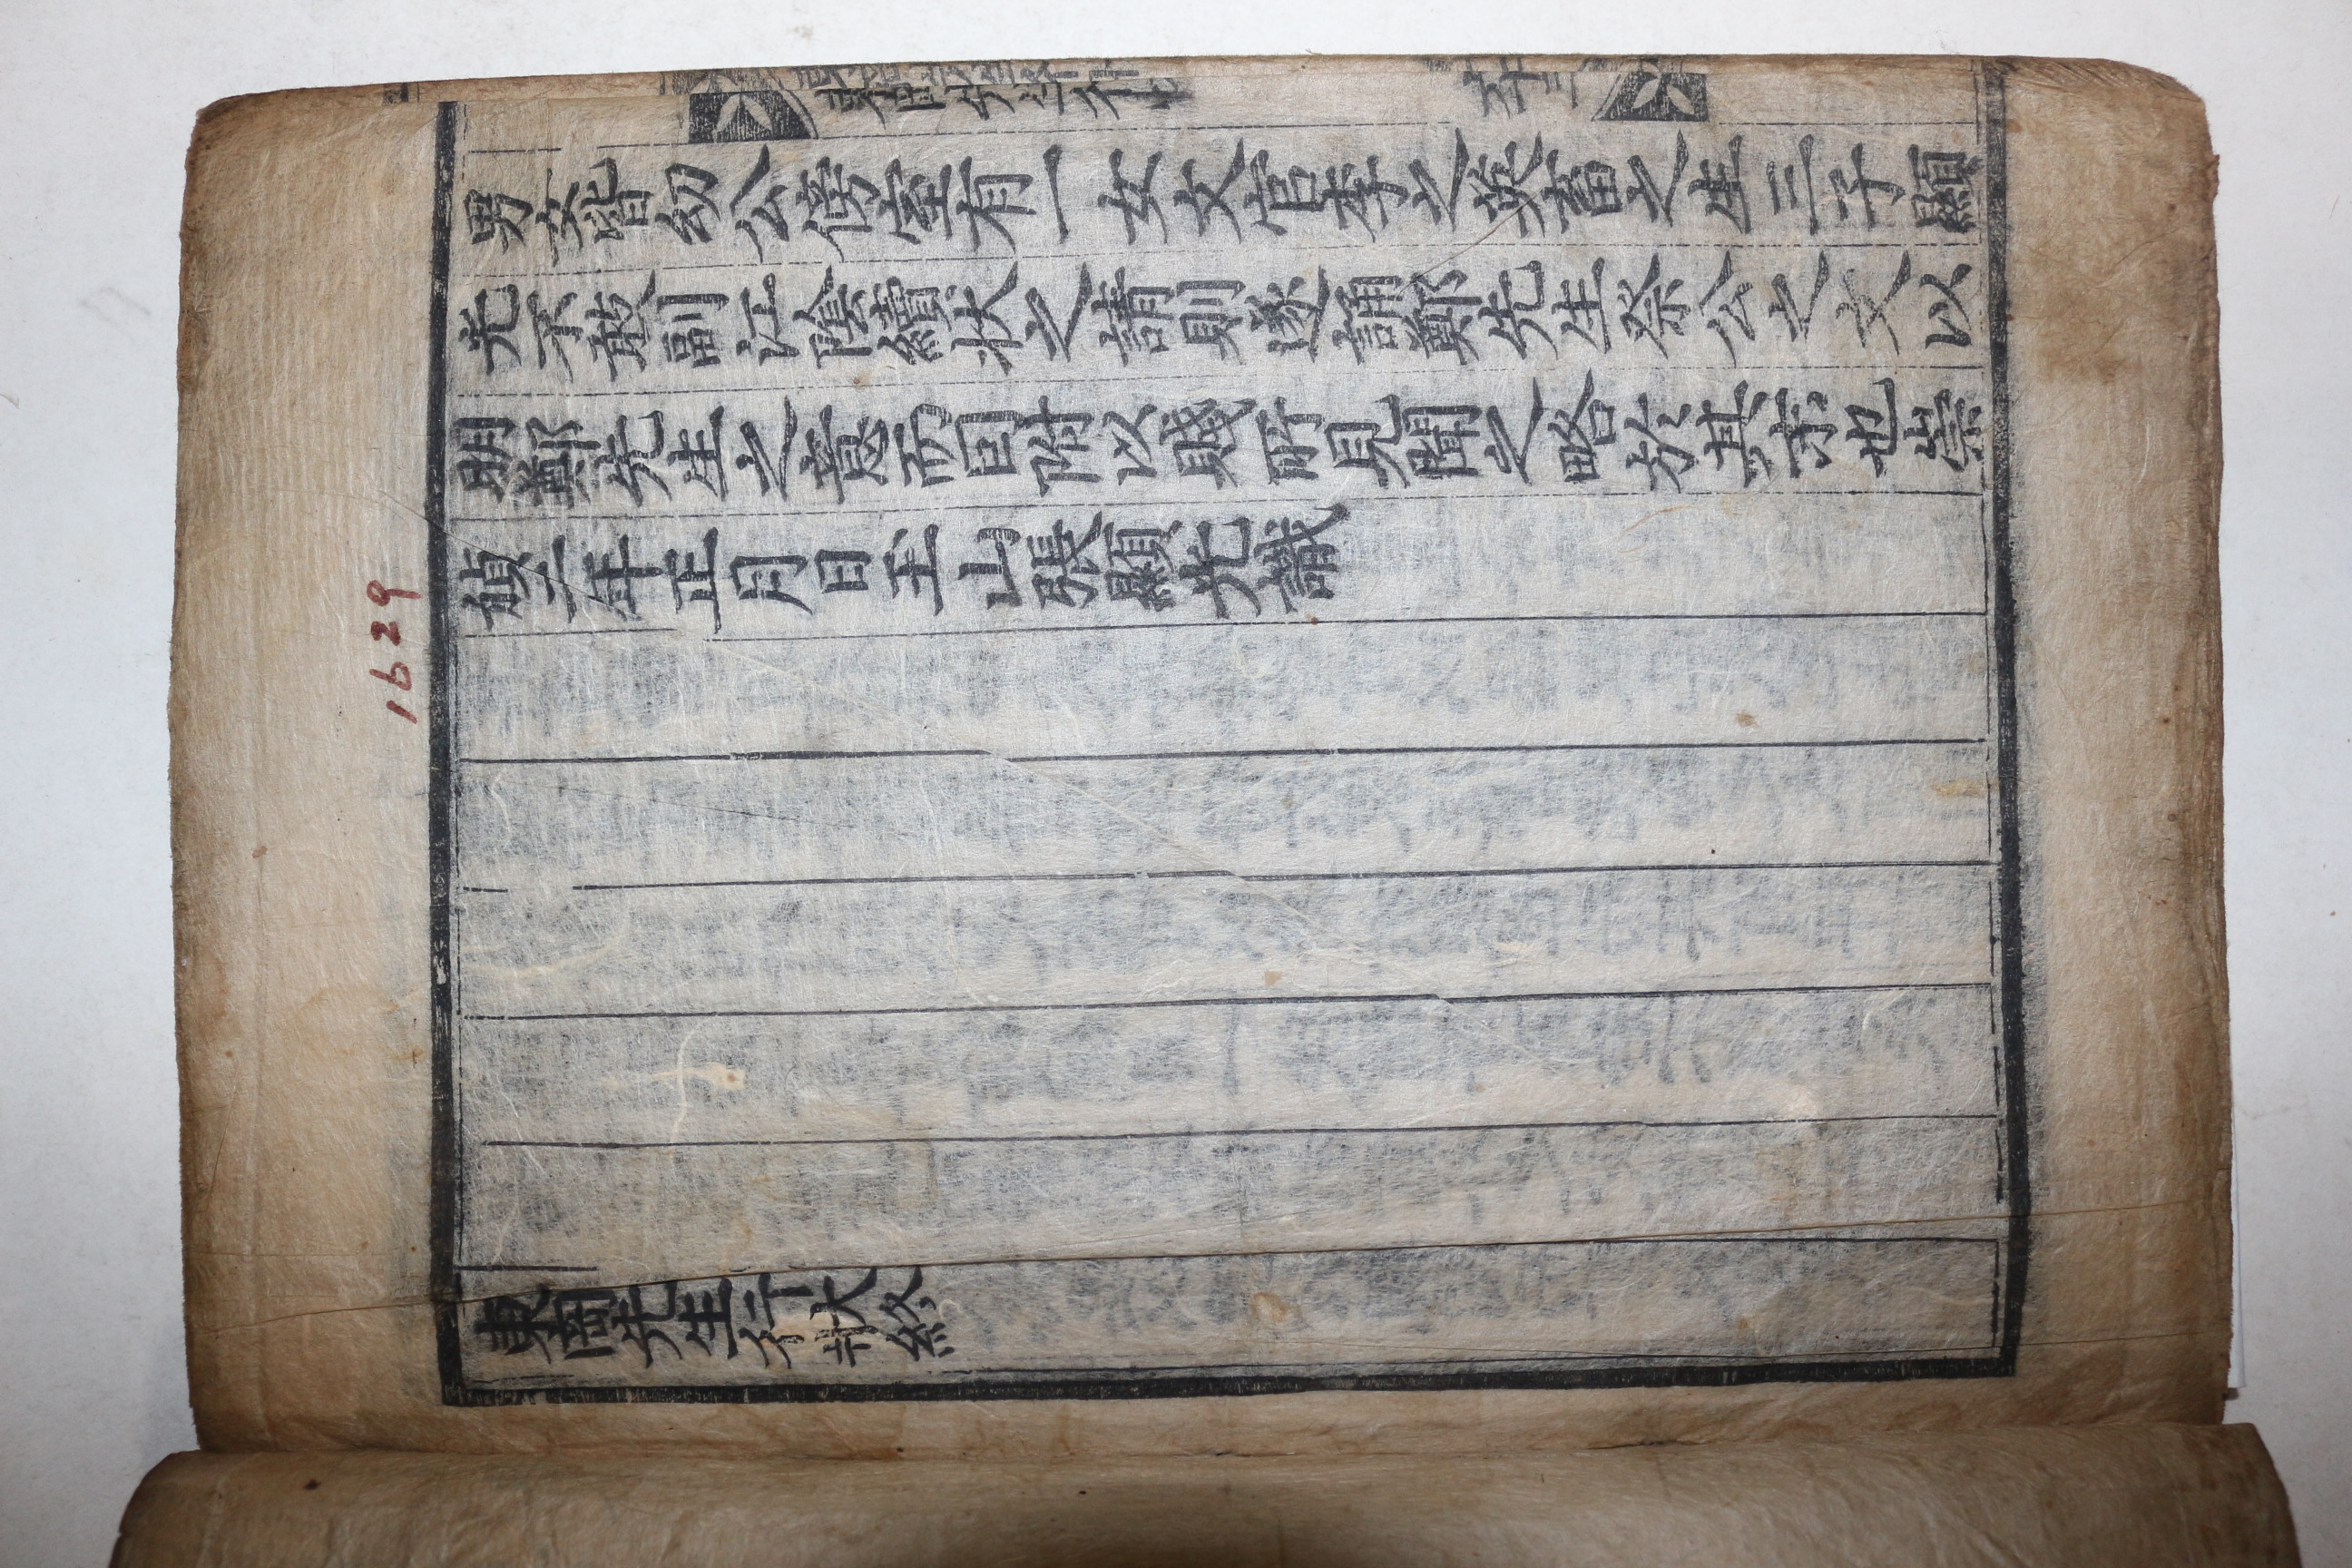 男女皆幼公傍室有一女文官李之英畜之生三子顯
光不敢副江陰狀之請則遂誦鄭先生祭公之文以
明鄭先生之意而因附以賤所見聞之略於其末也崇
禎二年正月日玉山張顯光識
東岡先生行狀終
1629